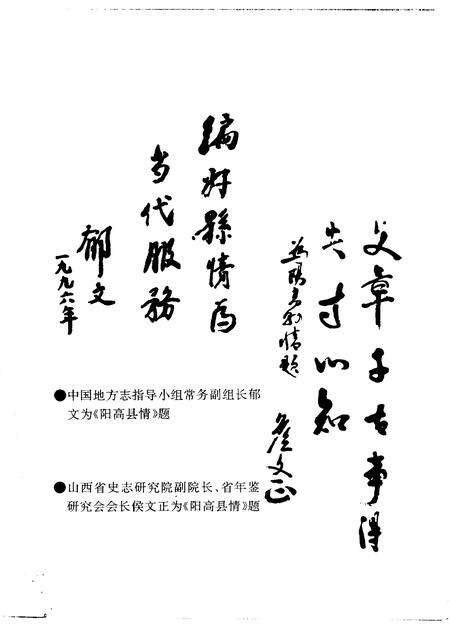 文章千古事得
失寸心知
为阳高县情题
侯文正
编好縣情为
当代服務
郁文
一九九六年
●中国地方志指导小组常务副组长郁
文为《阳高县情》题
●山西省史志研究院副院长、省年鉴
研究会会长侯文正为《阳高县情》题